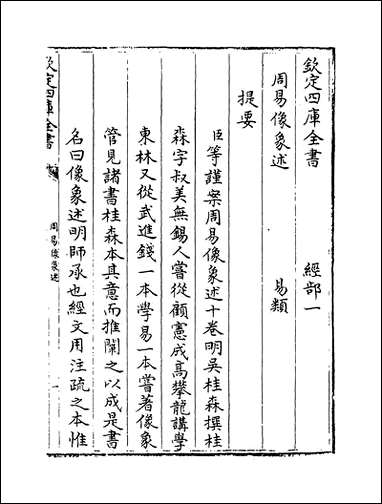 欽定四庫全書　　經部一
周易像象述　　易類
提要
臣等謹案周易像象述十卷明吳桂森撰桂
森字叔美無錫人嘗從顧憲成高攀龍講學
東林又從武進錢一本學易一本嘗著像象
管見諸書桂森本其意而推闡之以成是書
名曰像象述明師承也經文用注疏之本惟
欽定四庫全書
周易像象述
一